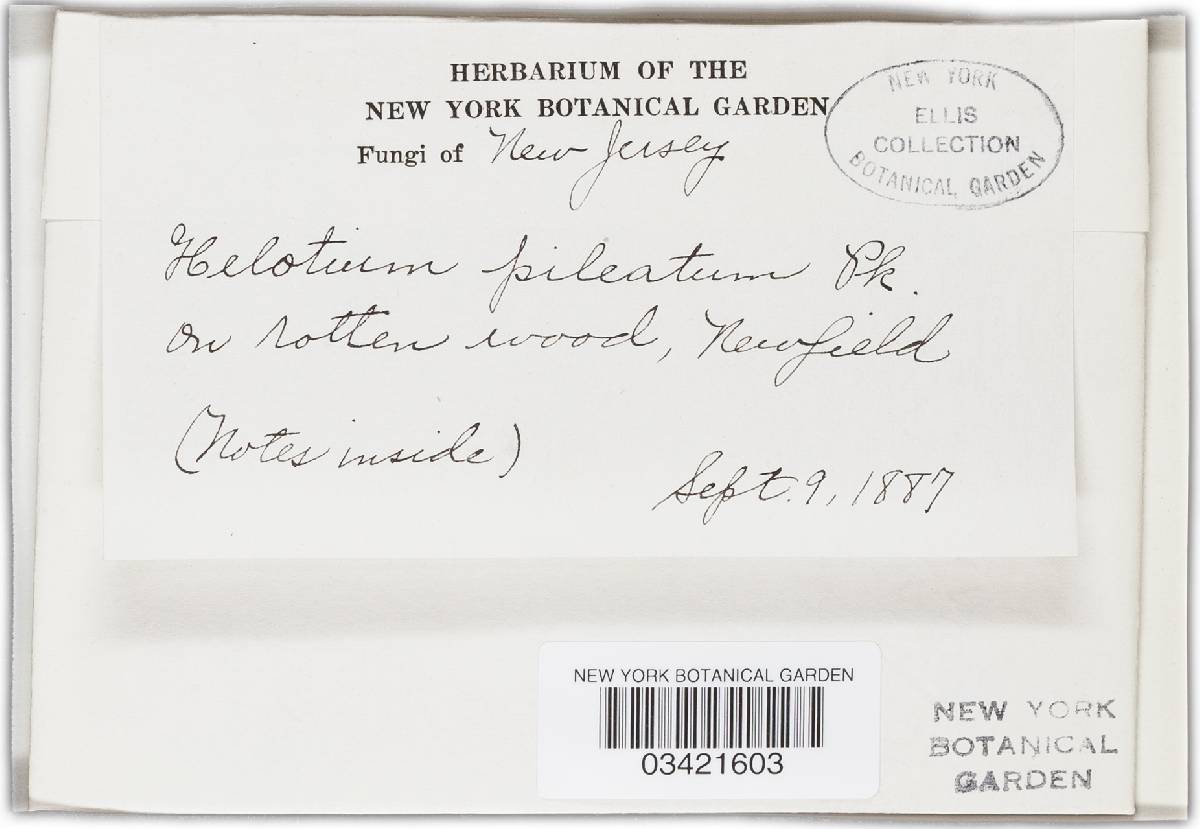 HERBARIUM OF THE
NEW YORK BOTANICAL GARDEN
Fungi of New Jersey
NEW YORK
ELLIS
COLLECTION
BOTANICAL GARDEN
Helotium pileatum Pk.
on rotten wood, Newfield
(Notes inside)
Sept. 9, 1887
NEW YORK BOTANICAL GARDEN
03421603
NEW YORK
BOTANICAL
GARDEN